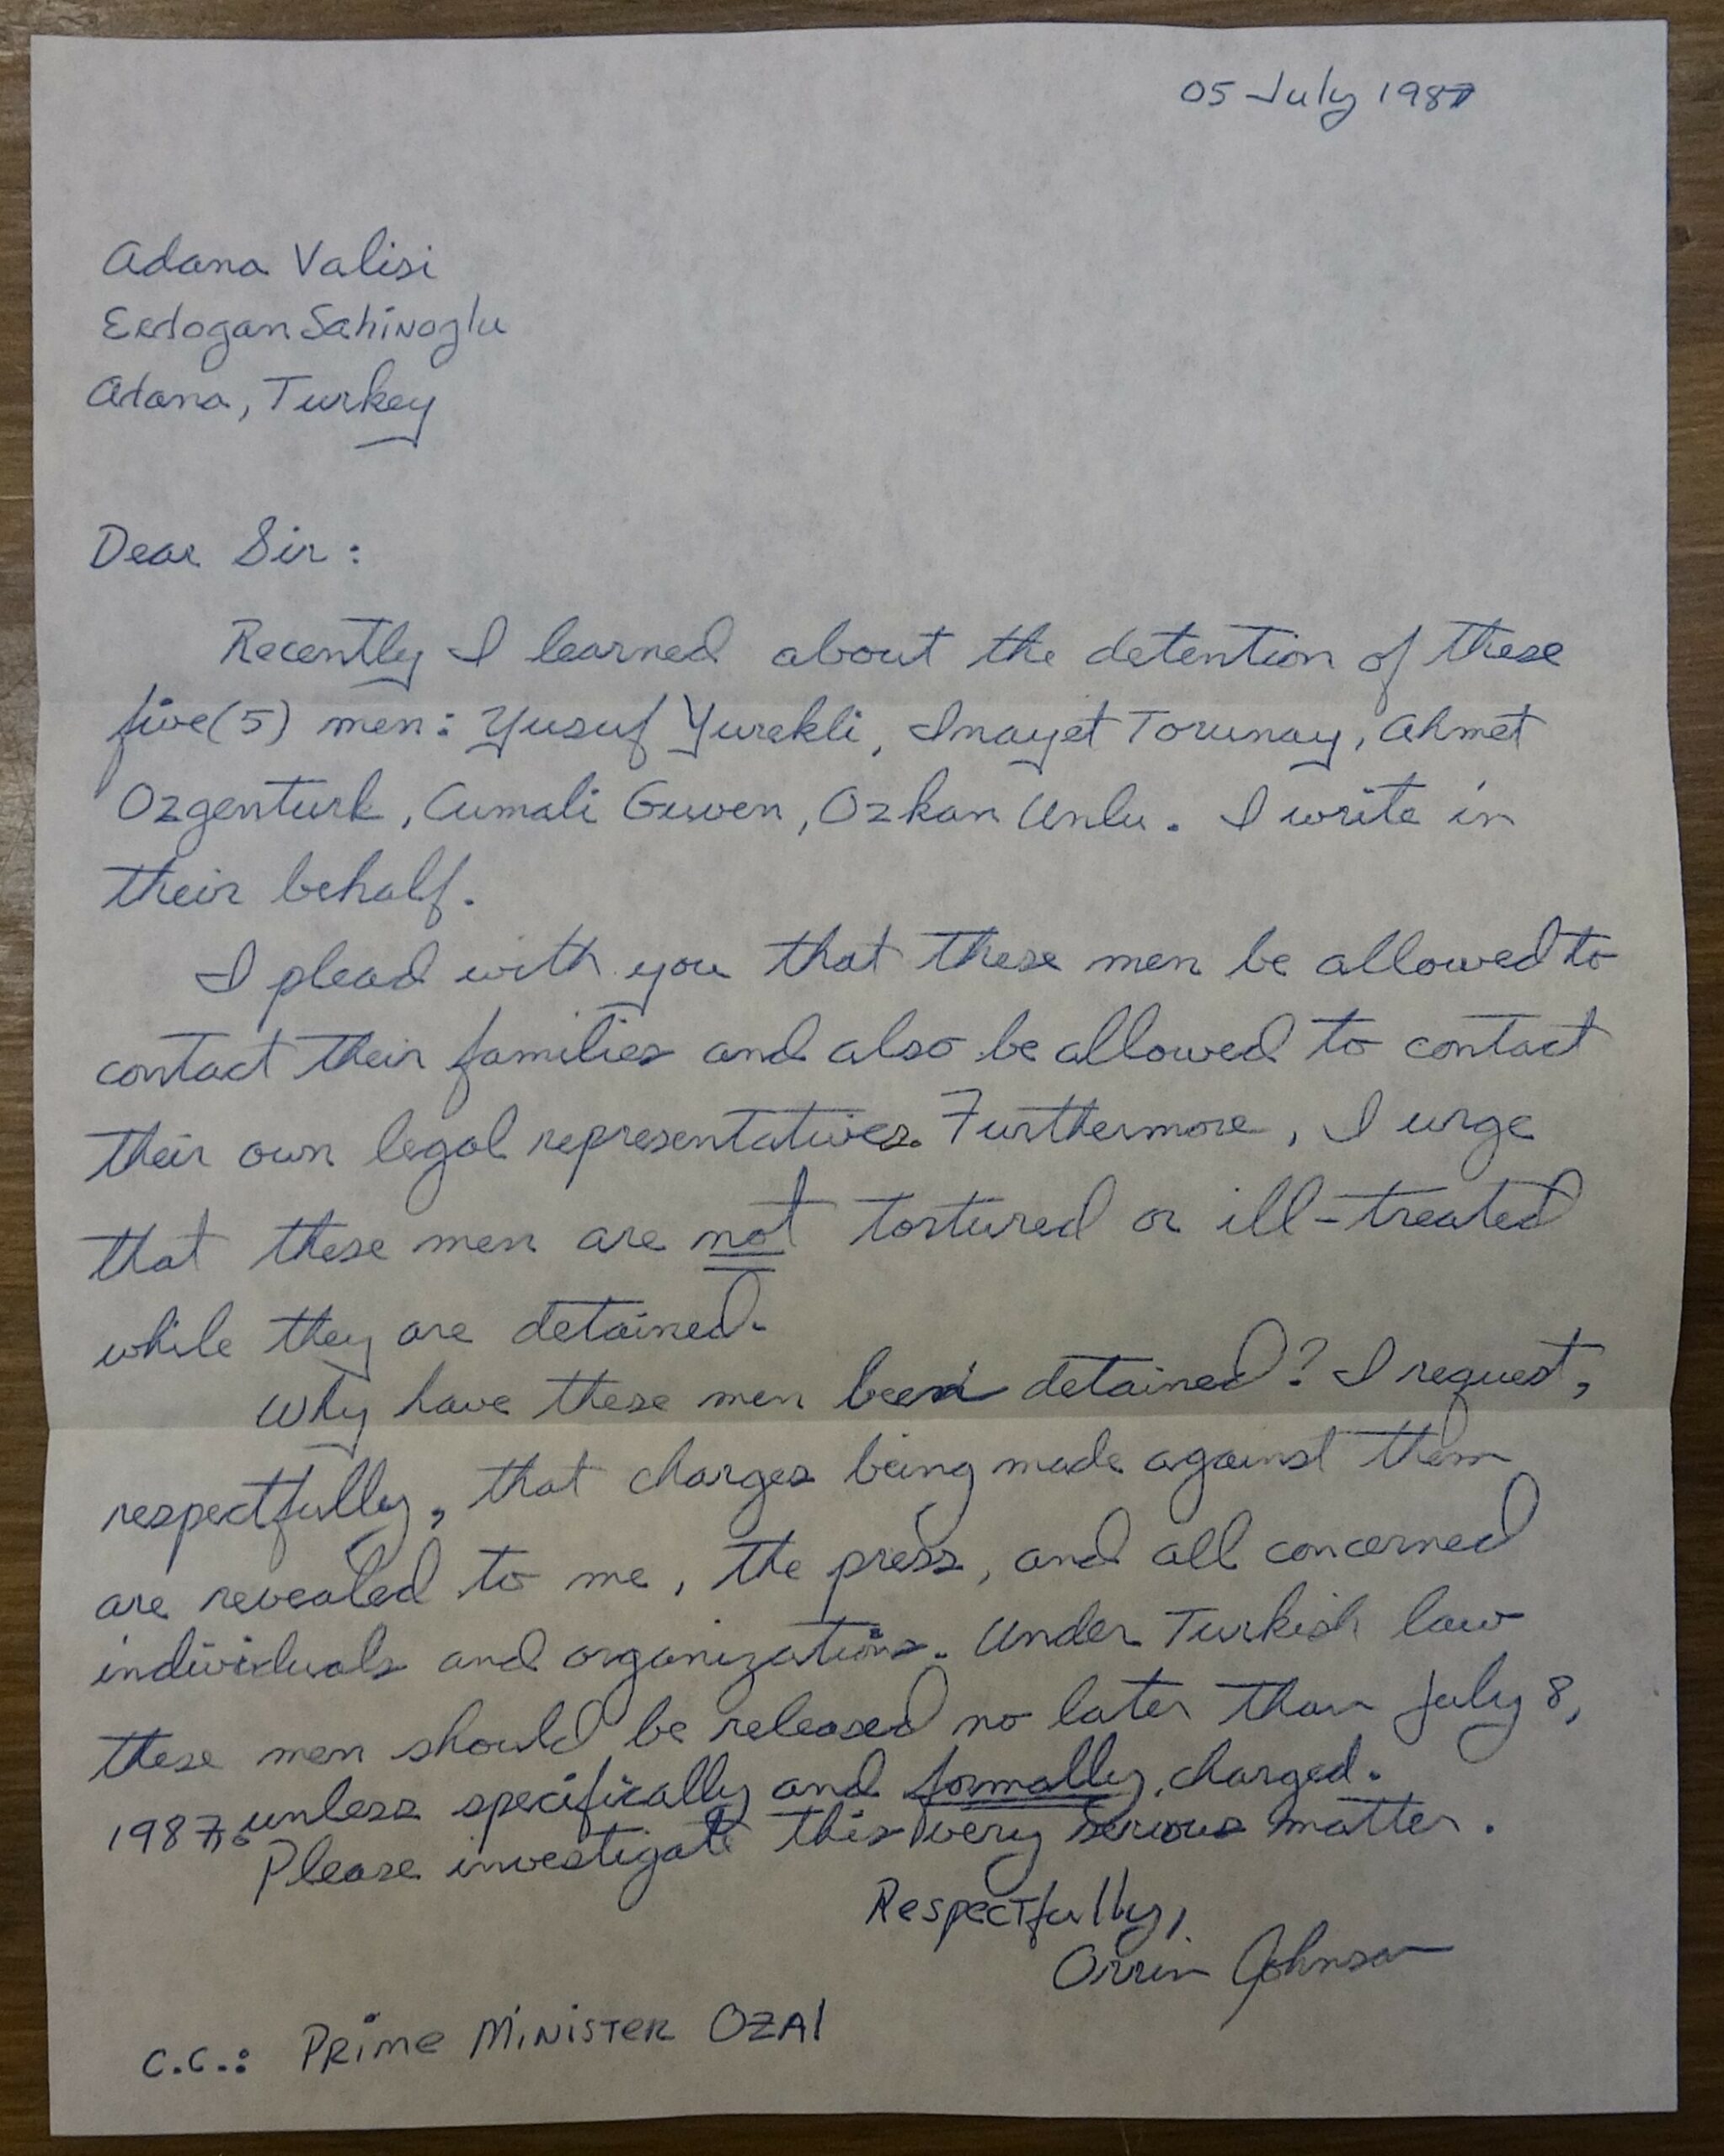 05 July 1987
Adana Valisi
Erdogan Sahinoglu
Adana, Turkey
Dear Sir:
Recently I learned about the detention of these
five(5) men: Yusuf Yurekli, Inayet Torunay, Ahmet
Ozgenturk, Cumali Guven, Ozkan Unlu. I write in
their behalf.
I plead with you that these men be allowed to
contact their families and also be allowed to contact
their own legal representatives. Furthermore, I urge
that these men are not tortured or ill-treated
while they are detained.
Why have these men been detained? I request,
respectfully, that charges being made against them
are revealed to me, the press, and all concerned
individuals and organizations. Under Turkish law
these men should be released no later than July 8,
1987, unless specifically and formally charged.
Please investigate this very serious matter.
Respectfully,
Orrin Johnson
c.c.: PRime MiNiSTER OZAl